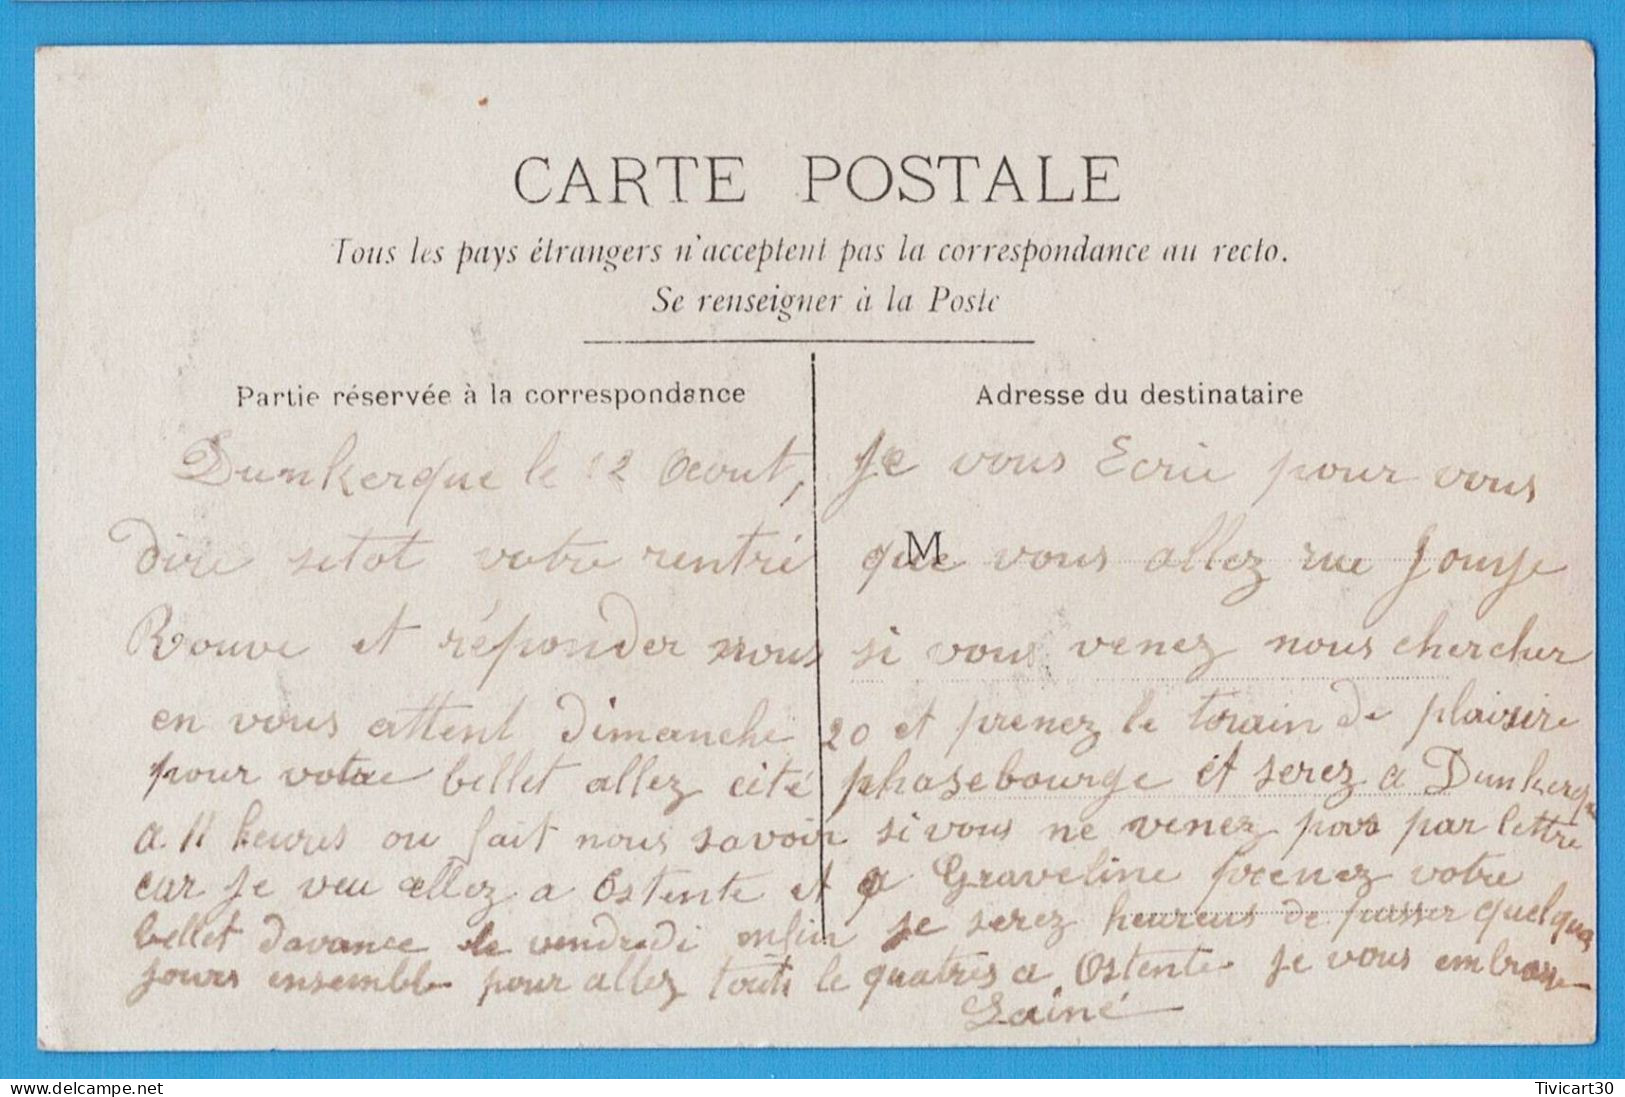 CARTE POSTALE
Tous les pays étrangers n'acceptent pas la correspondance au recto.
Se renseigner à la Poste
Partie réservée à la correspondance
Adresse du destinataire
M
Dunkerque le 12 Aout, Je vous Ecrie pour vous
dire setot votre rentré que vous allez rue
et réponder nous si vous venez nous chercher
en vous attent Dimanche 20 et prenez le train de plaisire
pour votre billet allez cité phasebourge et serez a Dunkerque
a 11 heures ou fait nous savoir si vous ne venez pas par lettre
car je veu allez a Ostente et a Graveline prenez votre
billet davance le vendredi enfin je serez heureus de passer quelques
jours ensemble pour allez touts le quatres a Ostente je vous embrasse
Lainé
Tivicart30
delcampe.net